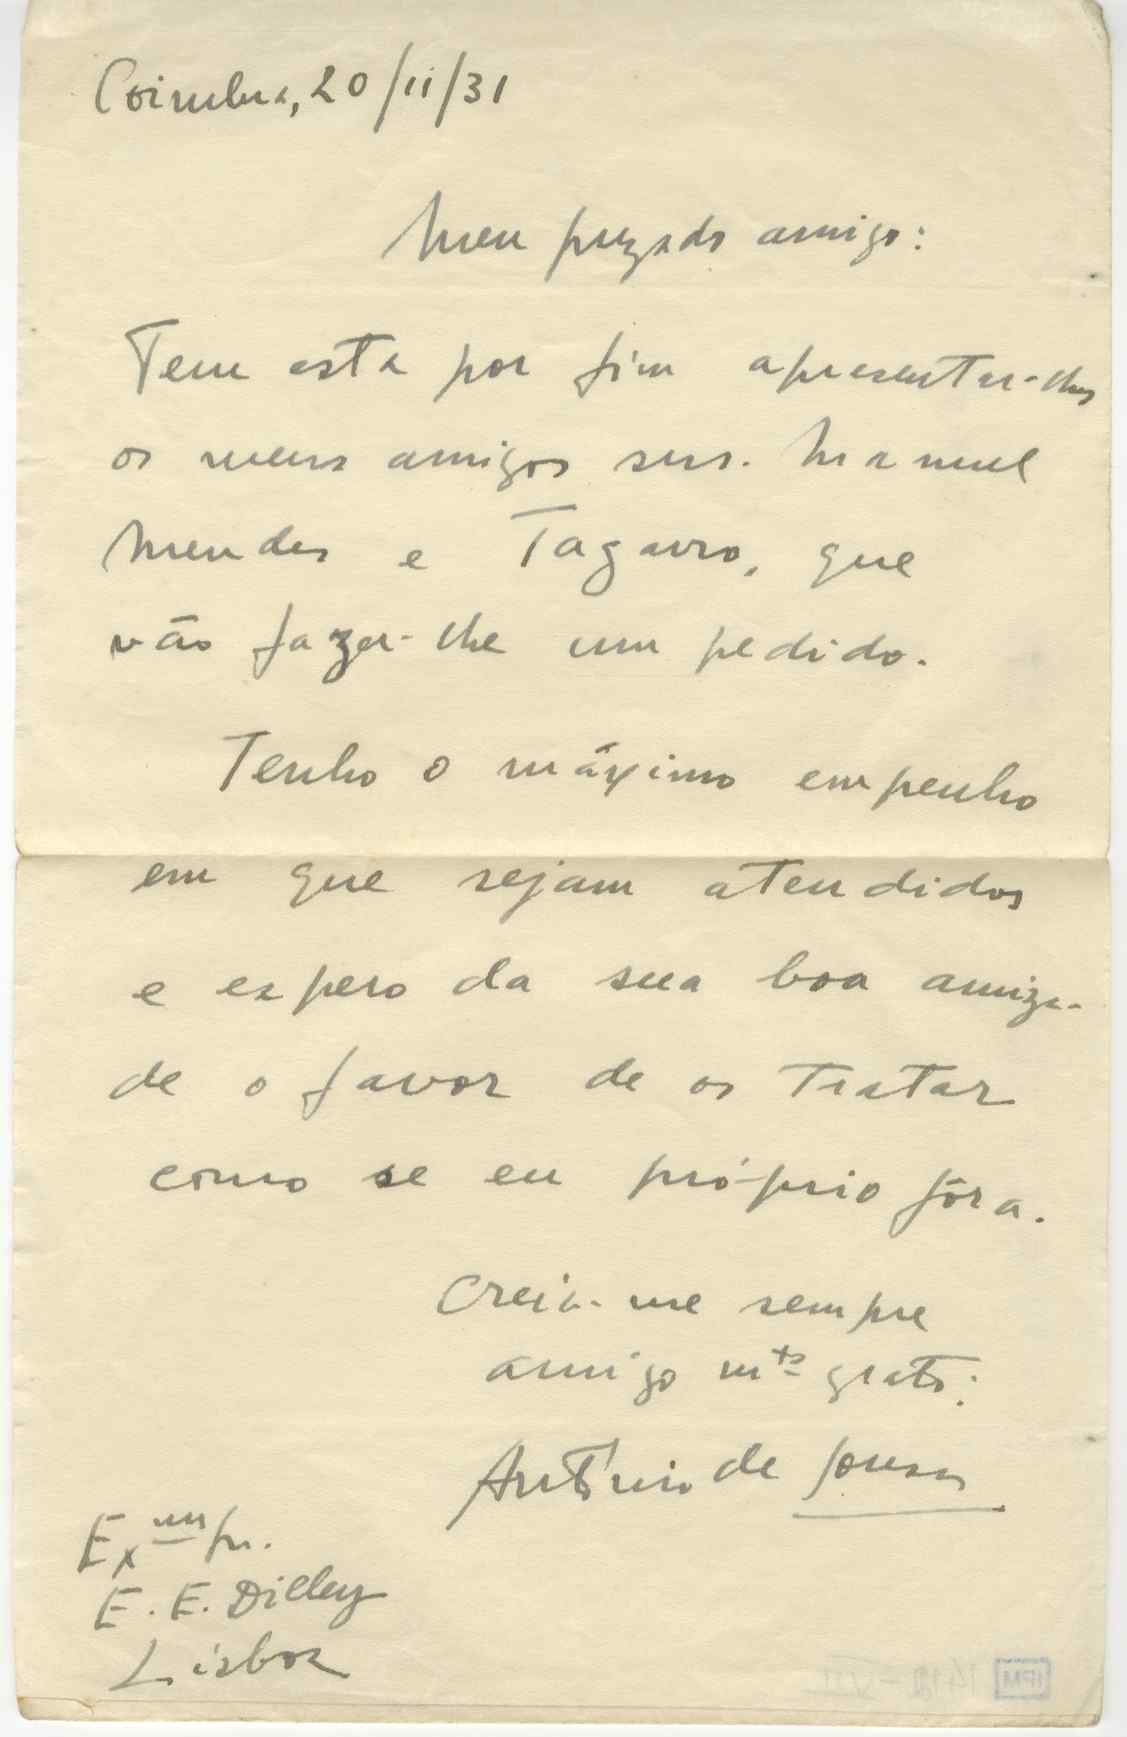 Coimbra, 20/11/31
Meu prezado amigo:
Tem esta por fim apresentar-lhe
os meus amigos snrs. Manuel
Mendes e Tagarro, que
vão fazer-lhe um pedido.
Tenho o máximo empenho
em que sejam atendidos
e espero da sua boa amiza-
de o favor de os tratar
como se eu próprio fôra.
Creia-me sempre
amigo mto grato:
António de Sousa
Exmo Sr.
E. E. Dilley
Lisboa
IPM